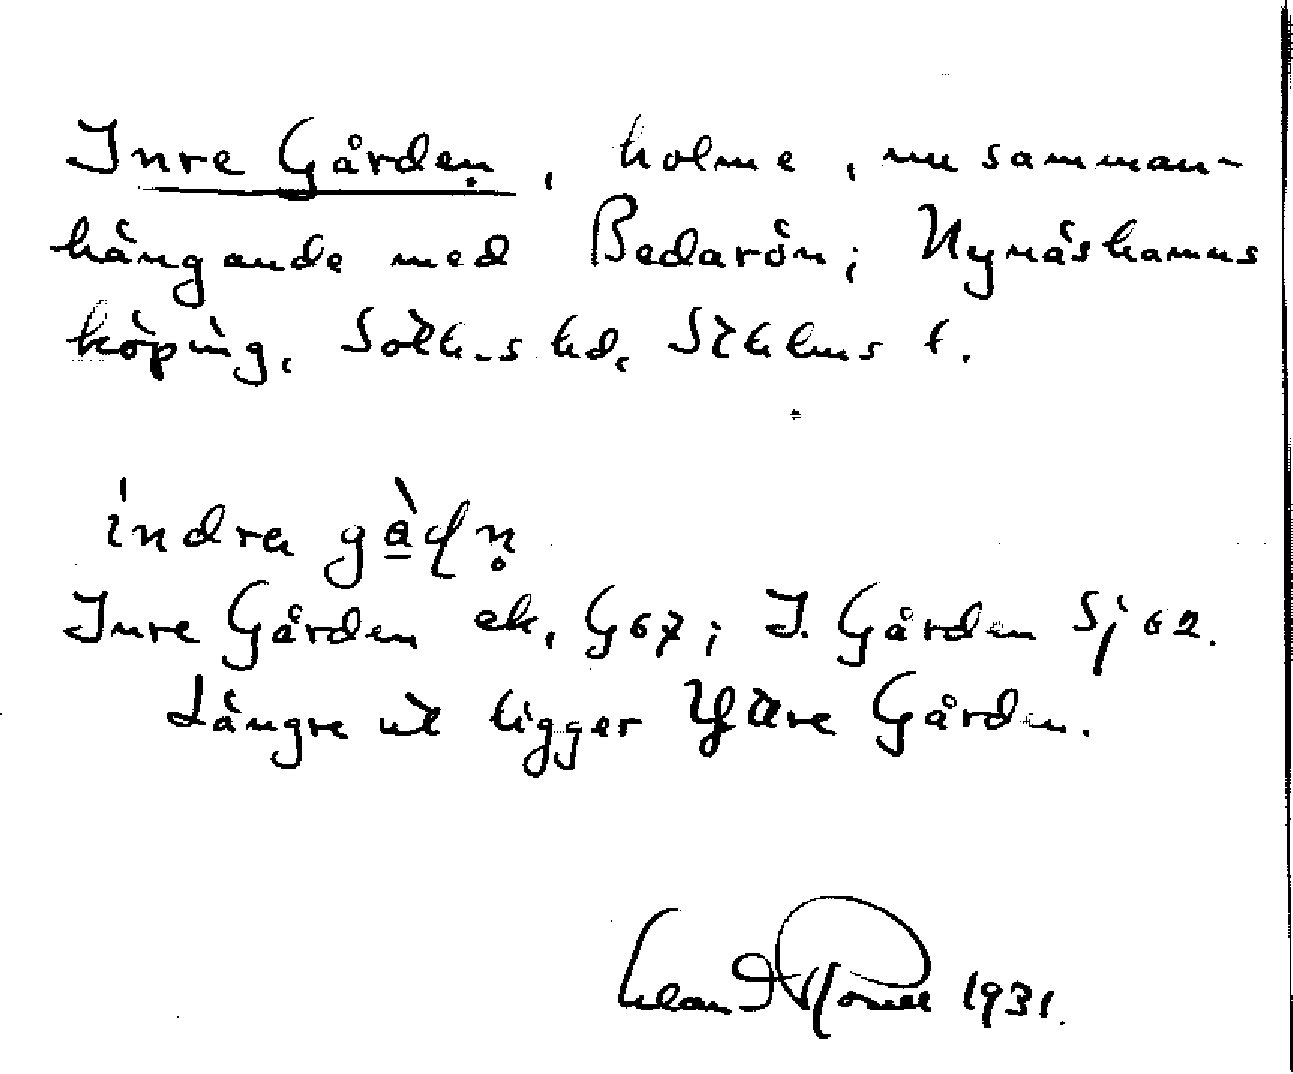 Inre Gården, holme, nu samman-
hängande med Bedarön; Nynäshamns
köping, Soth-s hd, Sthlms l.
indra
Inre Gården ek, G 67; I. Gården Sj 62.
Längre ut ligger Yttre Gården.
1931.